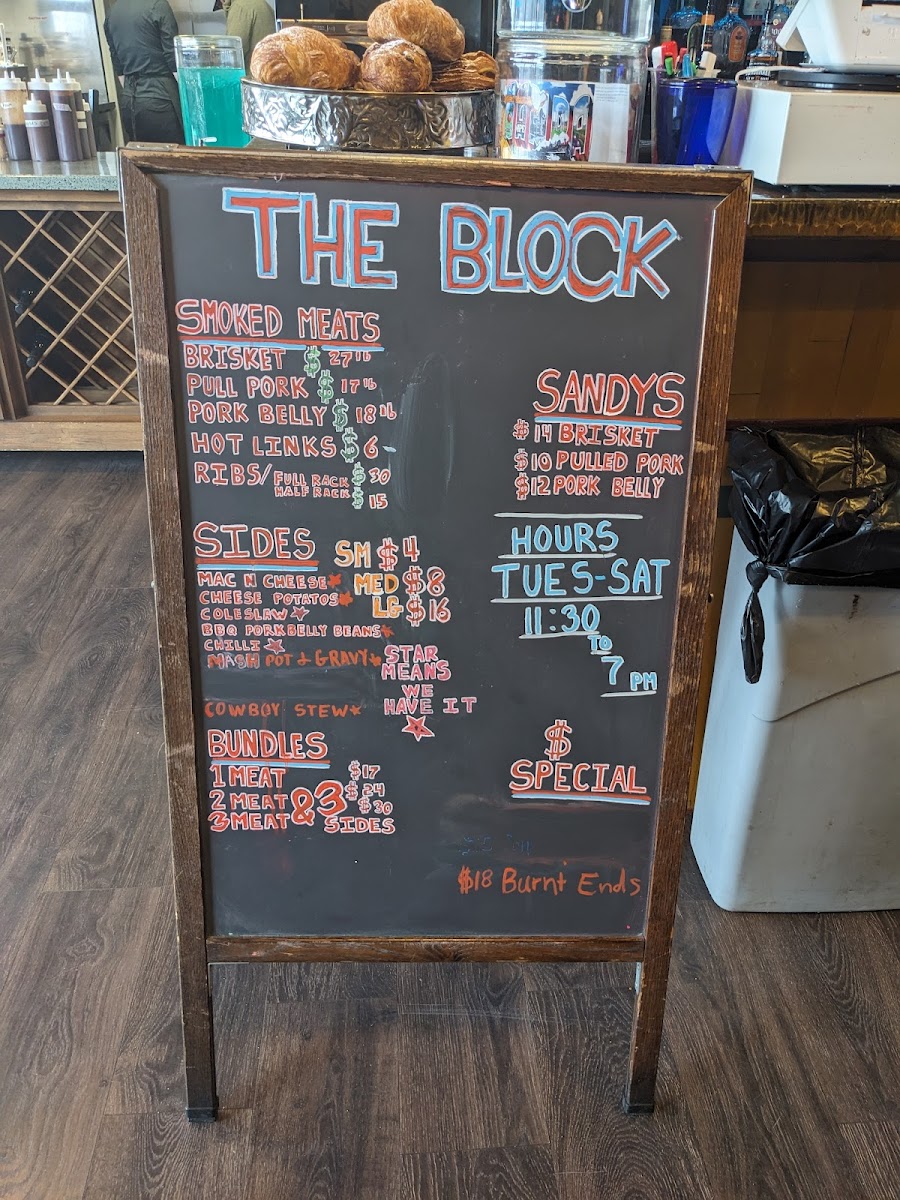 THE BLOCK
SMOKED MEATS
BRISKET $ 27 lb
PULL PORK $ 17 lb
PORK BELLY $ 18 lb
HOT LINKS $ 6
RIBS/ FULL RACK $ 30
HALF RACK $ 15
SIDES
SM $4
MED $8
LG $16
MAC N CHEESE
CHEESE POTATOS
COLESLAW
BBQ PORKBELLY BEANS
CHILLI
MASH POT & GRAVY
COWBOY STEW
STAR
MEANS
WE
HAVE IT
BUNDLES
1 MEAT $17
2 MEAT $24
3 MEAT $30
& 3
SIDES
SANDYS
$14 BRISKET
$10 PULLED PORK
$12 PORK BELLY
HOURS
TUES-SAT
11:30
TO
7 PM
$
SPECIAL
$18 Burnt Ends